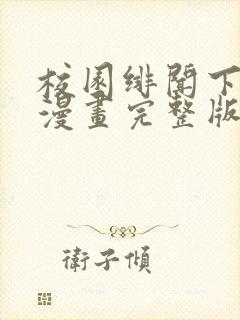 校園緋聞下
漫畫完整版
衛子傾